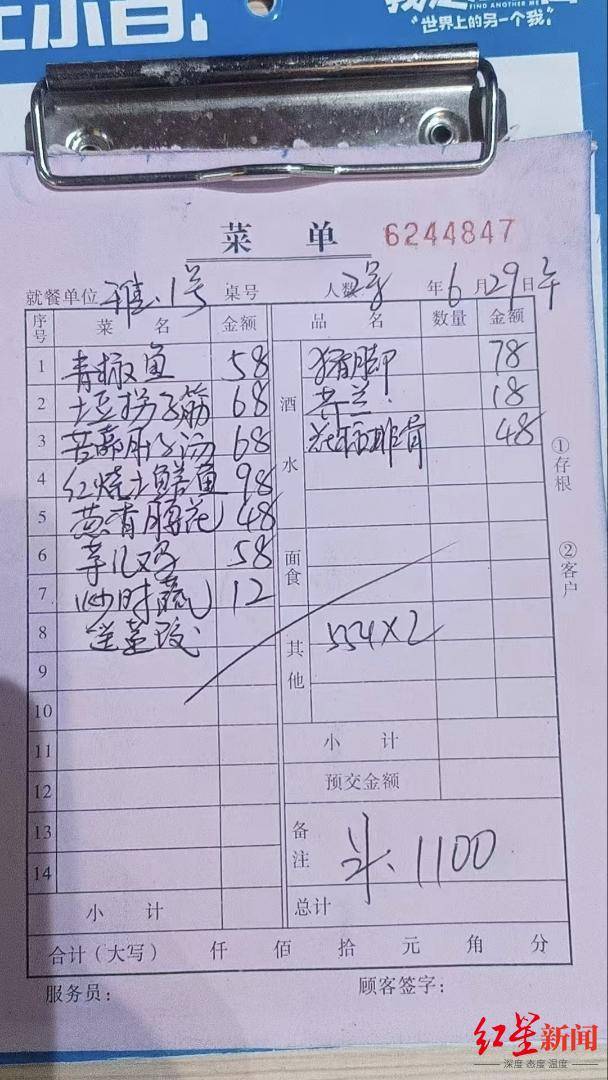 "世界上的另一个我"
菜 单 6244847
就餐单位 雅.1号 桌号 人数 2号 年 6 月 29 日 午
序号 菜 名 金额 品 名 数量 金额
1 青椒鱼 58 猪脚 78
2 土豆拐子筋 68 芥兰. 18
3 68 排骨 48
4 红烧土鳝鱼 98
5 48
6 58
7 炒时蔬 12
8
9
10
11
12
13
14
酒水
面食
其他 554×2
小 计
预交金额
备注 斗.1100
小 计 总计
合计(大写) 仟 佰 拾 元 角 分
服务员: 顾客签字:
①存根
②客户
红星新闻
深度 态度 温度